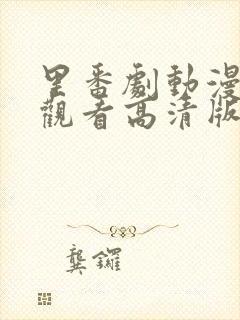 里番劇動漫
觀看高清版
龔鑼